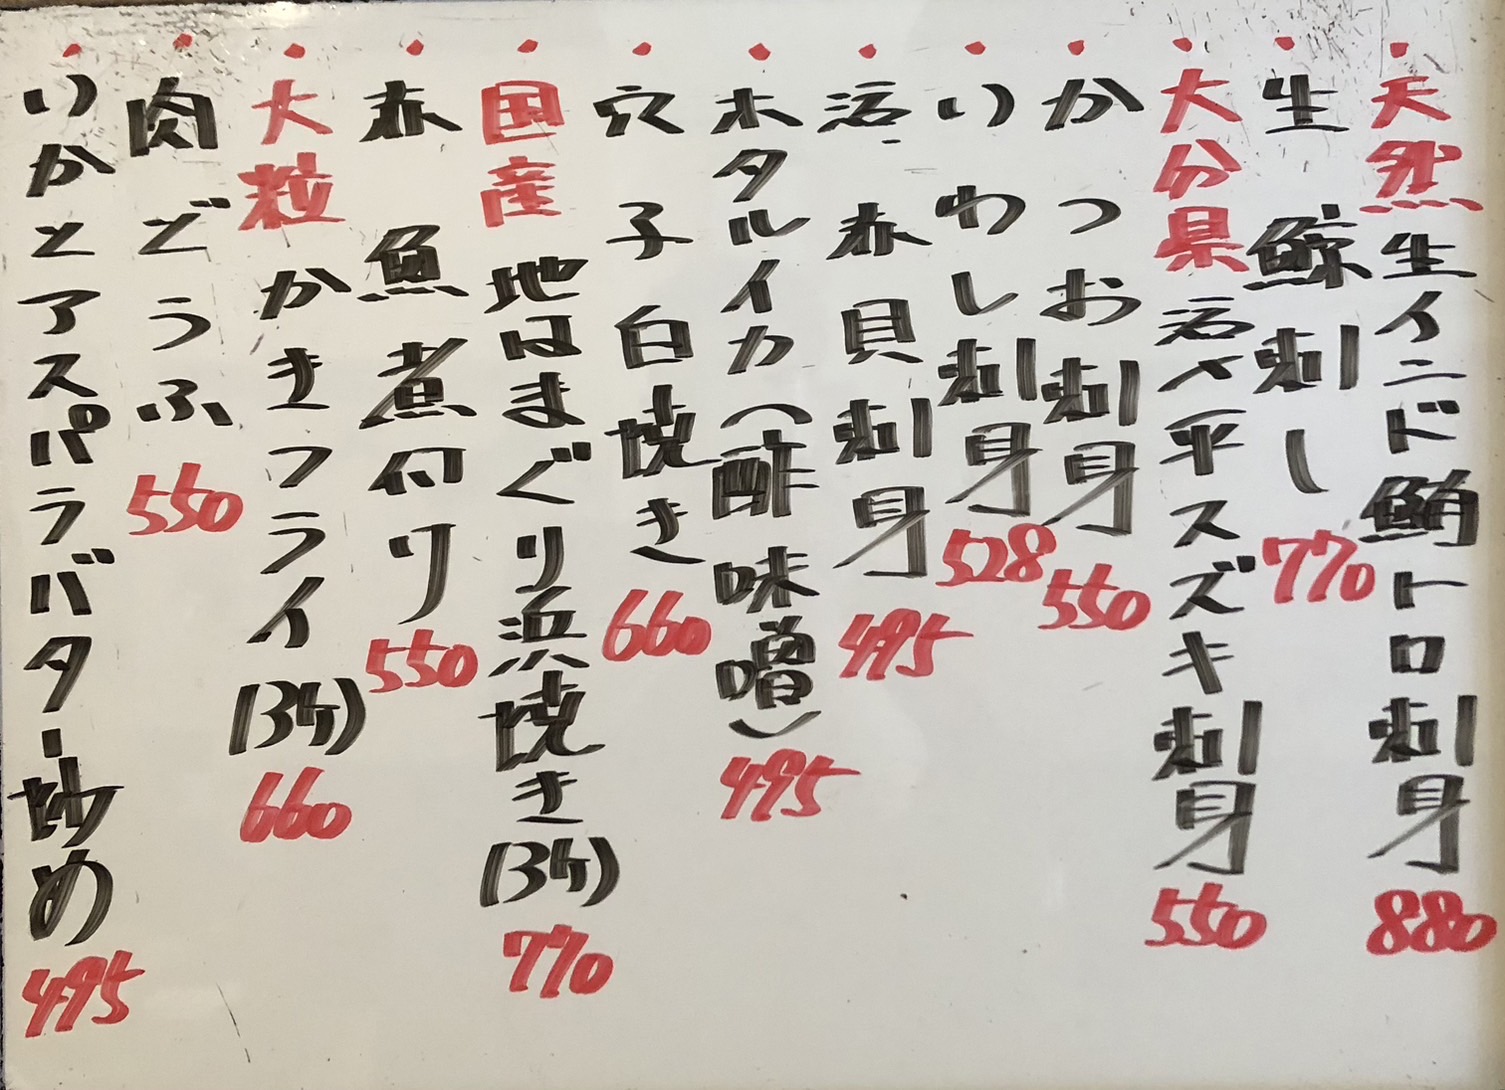 ・天然生インド鮪トロ刺身 880
・生鯨刺し 770
・大分県活〆平スズキ刺身 550
・かつお刺身 550
・いわし刺身 528
・活赤貝刺身 495
・ホタルイカ(酢味噌) 495
・穴子白焼き 660
・国産地はまぐり浜焼き(3ケ) 770
・赤魚煮付け 550
・大粒かきフライ(3ケ) 660
・肉どうふ 550
・いかとアスパラバター炒め 495